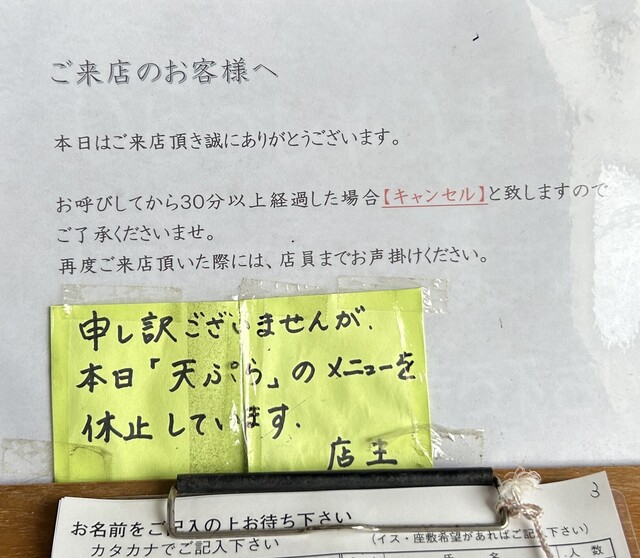 ご来店のお客様へ
本日はご来店頂き誠にありがとうございます。
お呼びしてから30分以上経過した場合【キャンセル】と致しますので
ご了承くださいませ。
再度ご来店頂いた際には、店員までお声掛けください。
申し訳ございませんが、
本日「天ぷら」のメニューを
休止しています.
店主
3
お名前をご記入の上お待ち下さい
カタカナでご記入下さい
(イス・座敷希望があればご記入下さい)
氏 名
人 数